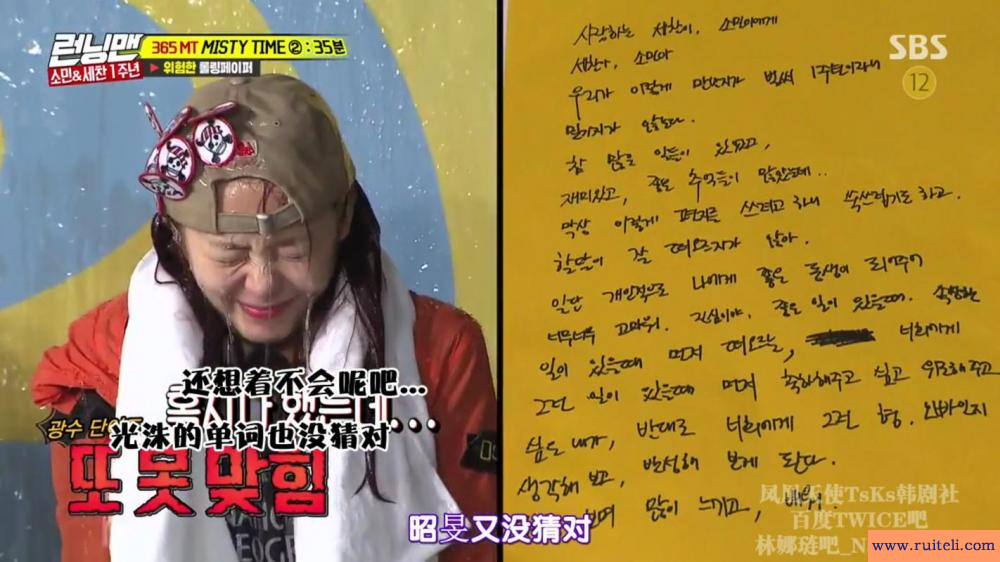 런닝맨
소민&세찬 1주년
365 MT MISTY TIME ② : 35분
▶ 위험한 롤링페이퍼
SBS
12
사랑하는 세찬이, 소민이에게
세찬아, 소민아
우리가 이렇게 만난지가 벌써 1주년이라니
믿기지가 않는다.
참 많은 일들이 있었고,
재미있고, 좋은 추억들이 많았는데..
막상 이렇게 편지를 쓰려고 하니 쑥쓰럽기도 하고.
할말이 잘 떠오르지가 않아.
일단 개인적으로 나에게 좋은 동생이 되어주어
너무너무 고마워. 진심이야. 좋은 일이 있을때. 속상한
일이 있을때 먼저 떠오르는, 너희에게
그런 일이 있을때 먼저 축하해주고 싶고 위로해주고
싶은 내가, 반대로 너희에게 그런 형, 오빠인지
생각해 보고, 반성해 보게 된다.
많이 느끼고, 배워
还想着不会呢吧...
혹시나 했는데...
光洙的单词也没猜对
광수 단
또 못 맞힘
昭旻又没猜对
凤凰天使TsKs韩剧社
百度TWICE吧
林娜琏吧_N
www.ruiteli.com